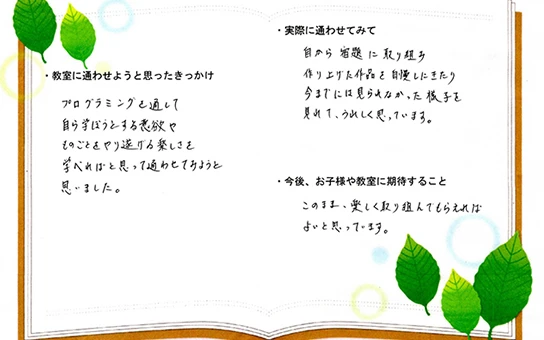 ・教室に通わせようと思ったきっかけ
プログラミングを通して
自ら学ぼうとする意欲や
ものごとをやり遂げる楽しさを
学べればと思って通わせてみようと
思いました。
・実際に通わせてみて
自から宿題に取り組み
作り上げた作品を自慢しにきたり
今までには見られなかった様子を
見れて、うれしく思っています。
・今後、お子様や教室に期待すること
このまま、楽しく取り組んでもらえれば
よいと思っています。